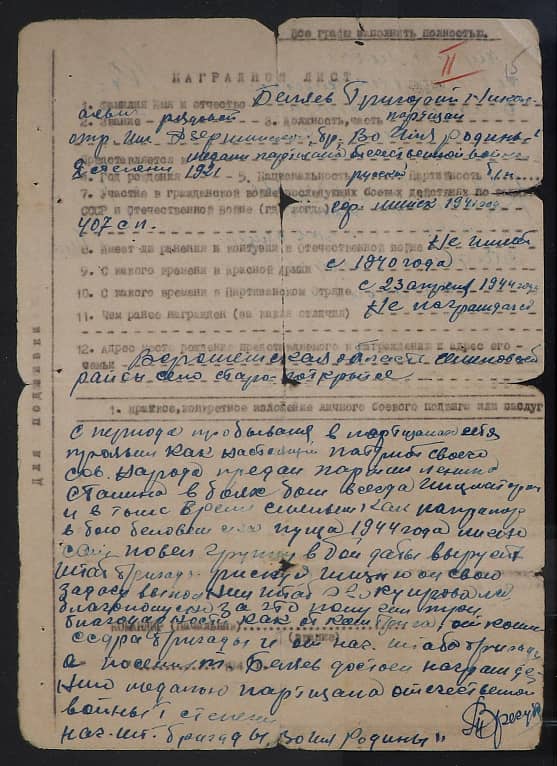 Все графы заполнить полностью.
II
15
НАГРАДНОЙ ЛИСТ
1. Фамилия Имя и отчество Беляев Григорий Никол
аевич
2. Звание рядовой 3. Должность, часть партизан
отр. им. Дзержинского, бр. Во Имя Родины"
Представляется к медали партизан отечественной войны
2 степени
4. Год рождения 1921 5. Национальность русский Партийность б/п.
7. Участие в гражданской войне, последующих боевых действиях по защите
СССР и Отечественной войне (где, когда) гор. Минск 1941 год
407 с п.
8. Имеет ли ранения и контузии в Отечественной войне Не имеет
9. С какого времени в Красной Армии с 1940 года
10. С какого времени в Партизанском Отряде с 23 апреля 1944 года
11. Чем ранее награжден (за какие отличия) Не награждался
12. Адрес место рождение представляемого к награждению и адрес его
семьи
район село Старо
ДЛЯ ПОДШИВКИ
1. Краткое, конкретное изложение личного боевого подвига или заслуг
С периода пребывания в партизанах себя
проявил как настоящий патриот своего
сов. народа предан партии Ленина
Сталина в боях был всегда
и в тоже время смелым как например
в бою пуща 1944 года
сам повел группу в бой дабы выручить
штаб бригады рискуя жизнью он свою
задачу выполнил штаб
благополучно за это получил три
благодарности как от бригады, от коман
Командир (начальник)
(звание)
бригады и от нач. штаба бригады
194
т. Беляев достоен награжде
нию медалью партизана отечественой
войны I степени
нач. шт. бригады „Во имя Родины"